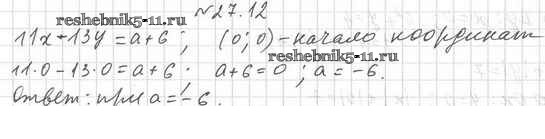 №27.12
11x+13y=a+6; (0;0)-начало координат
11·0-13·0=a+6. a+6=0; a=-6.
Ответ: при a=-6.
reshebnik5-11.ru
reshebnik5-11.ru